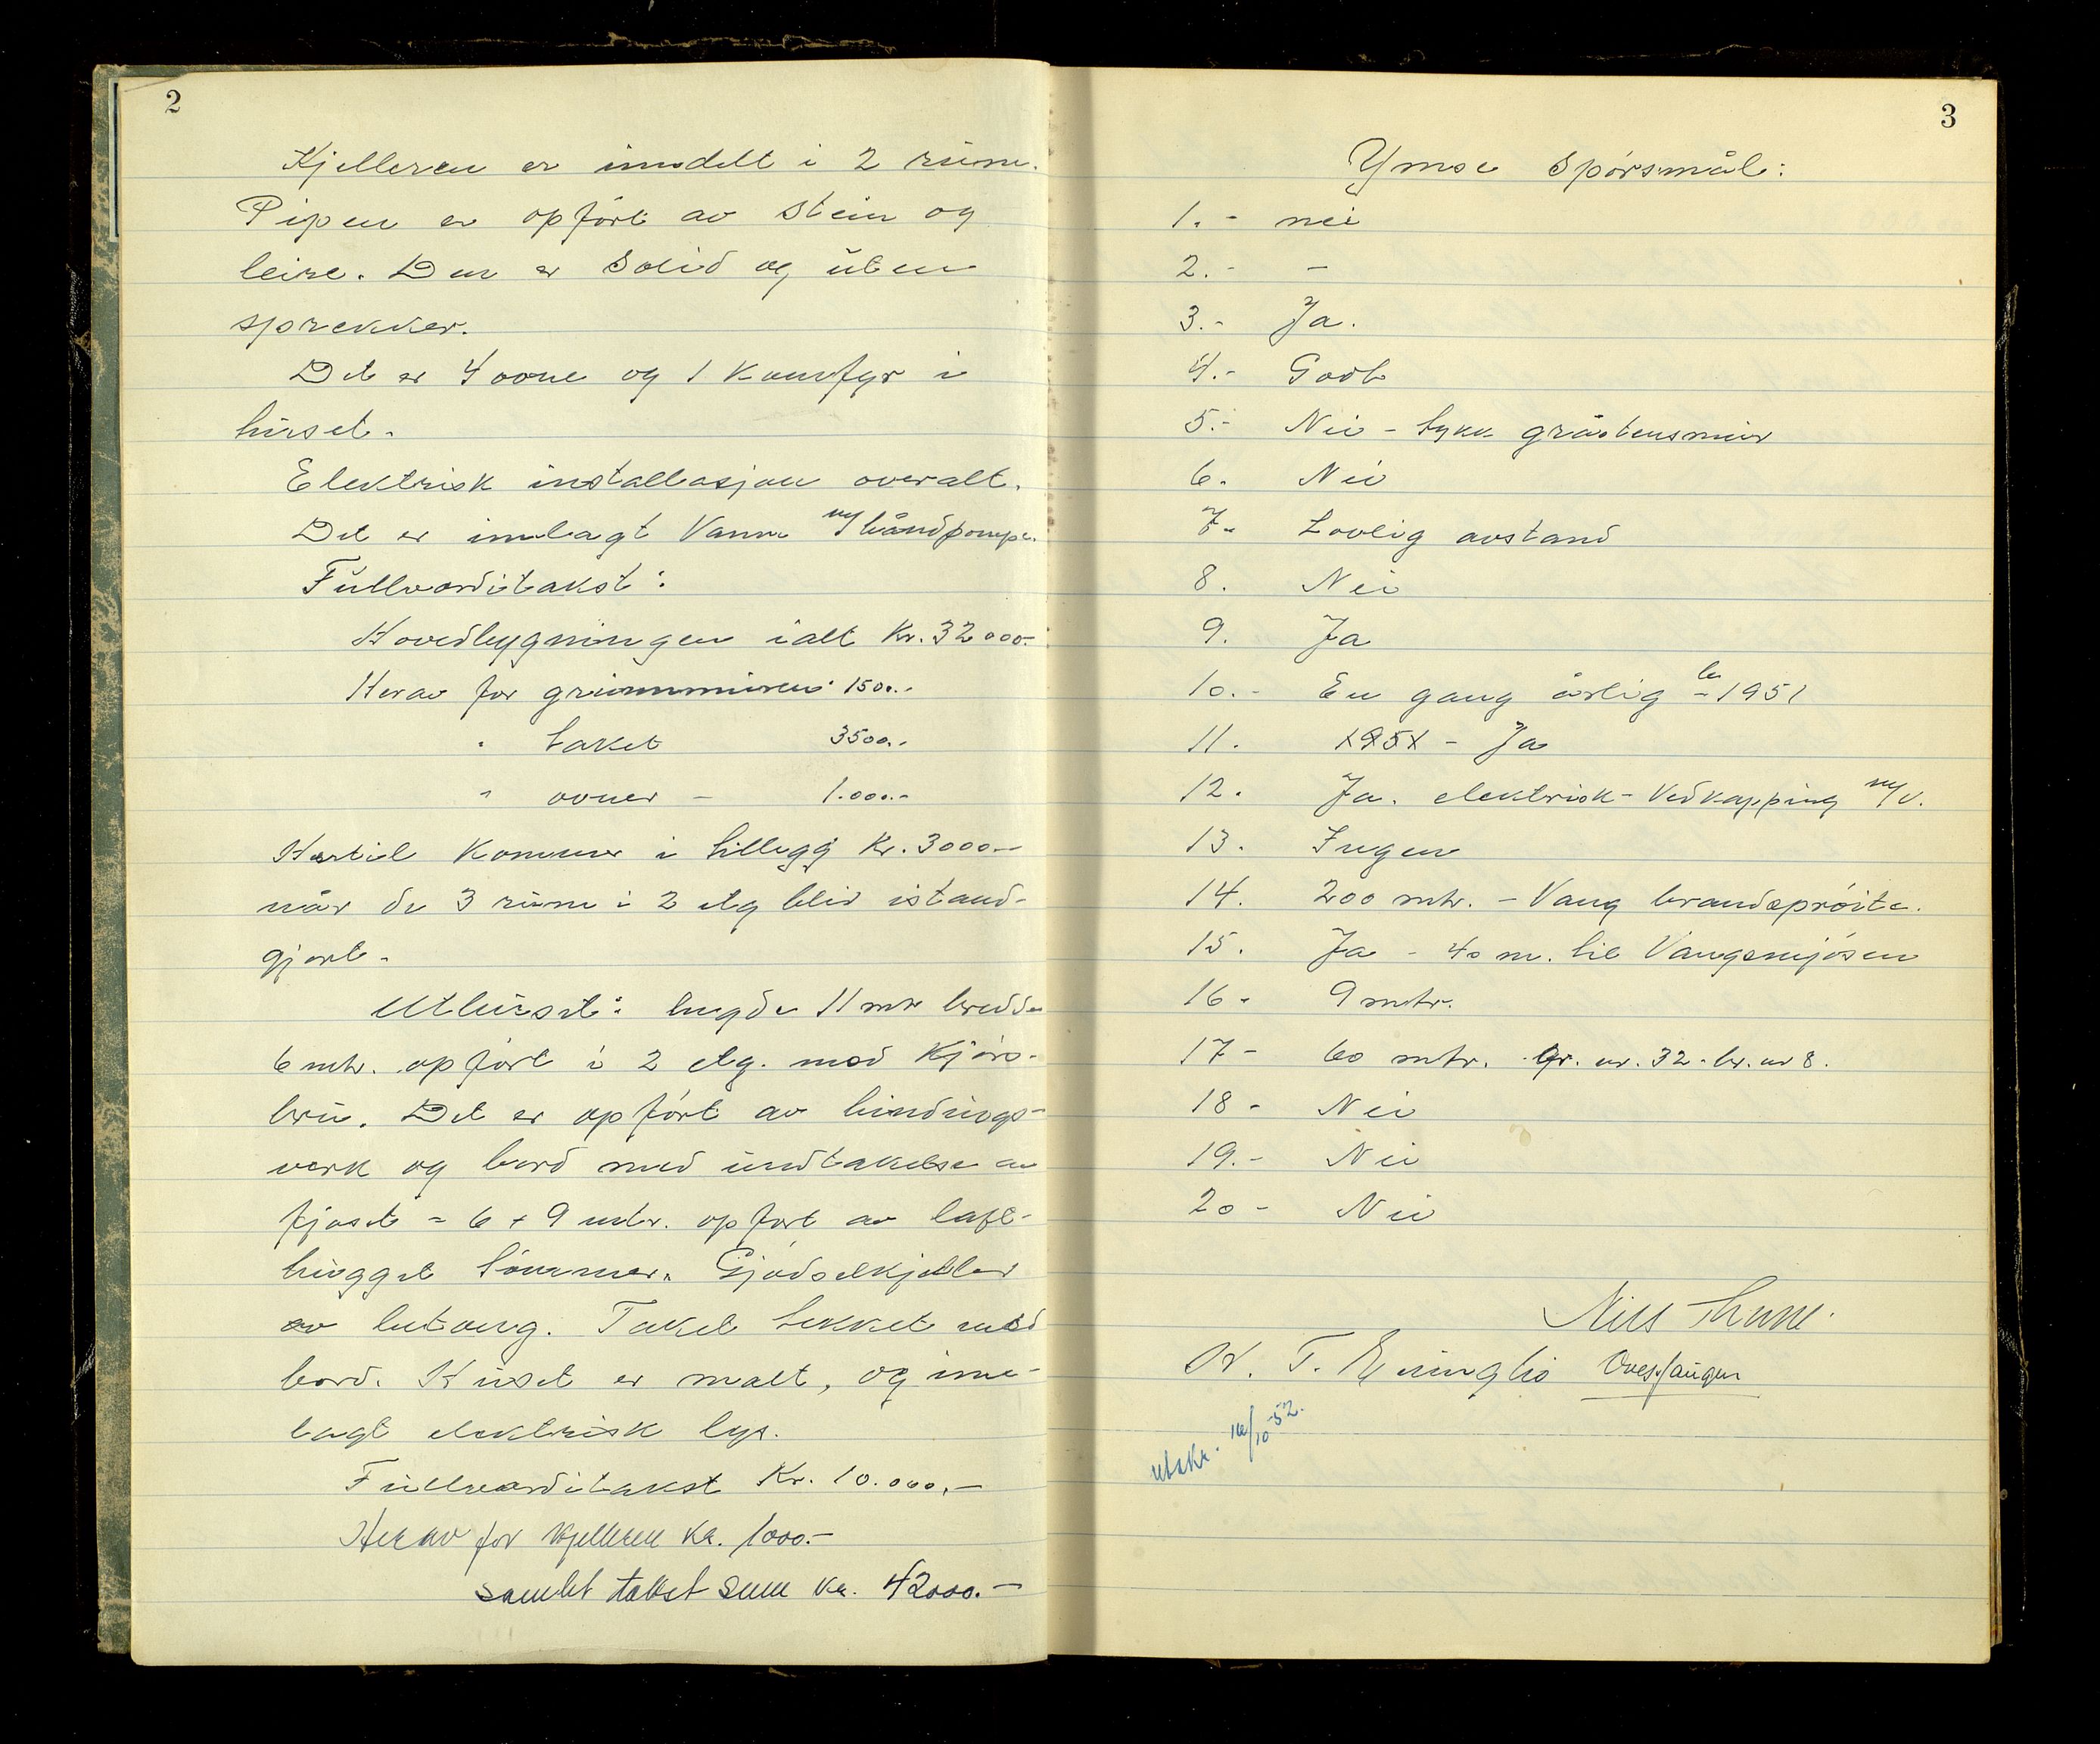 2
Kjelleren er inndelt i 2 rum.
Pipen er opført av stein og
leire. Den er Solid og uten
sprekker.
Det er 4 ovne og 1 Komfyr i
huset.
Elektrisk installasjon overalt.
Det er innlagt Vann m/håndpompe.
Fullverditakst:
Hovedbygningen ialt Kr. 32000.-
Herav for grunnmuren 1500.-
" taket 3500.-
" ovner - 1.000.-
Hertil kommer i tillegg Kr. 3000.-
når de 3 rum i 2 etg blir istand-
gjort.
Uthuset: lengde 11 mtr bredde
6 mtr. opført i 2 etg. med Kjøre-
bru. Det er opført av bindings-
verk og bord med undtakelse av
fjøset = 6 x 9 mtr. opført av laft-
hugget tømmer. Gjødselkjeller
av betong. Taket tekket med
bord. Huset er malt, og inn-
lagt elektrisk lys.
Fullverditakst Kr. 10.000,-
Herav for kjelleren kr. 1000.-
samlet takst sum kr. 42000.-
3
Ymse Spørsmål:
1. - nei
2. - -
3. - Ja.
4. - Godt
5. - Nei - tykk gråstensmur
6. Nei
7. Lovlig avstand
8. Nei
9. Ja
10. - En gang årlig - 1951
11. 1951 - Ja
12. Ja. elektrisk - Vedkapping m/v.
13. Ingen
14. 200 mtr. - Vang brandsprøite.
15. Ja - 40 m. til Vangsmjøsen
16. 9 mtr.
17 - 60 mtr. Gr. nr. 32 - br. nr 8.
18 - Nei
19. - Nei
20 - Nei
Nils
T.
utskr. 16/10 -52.